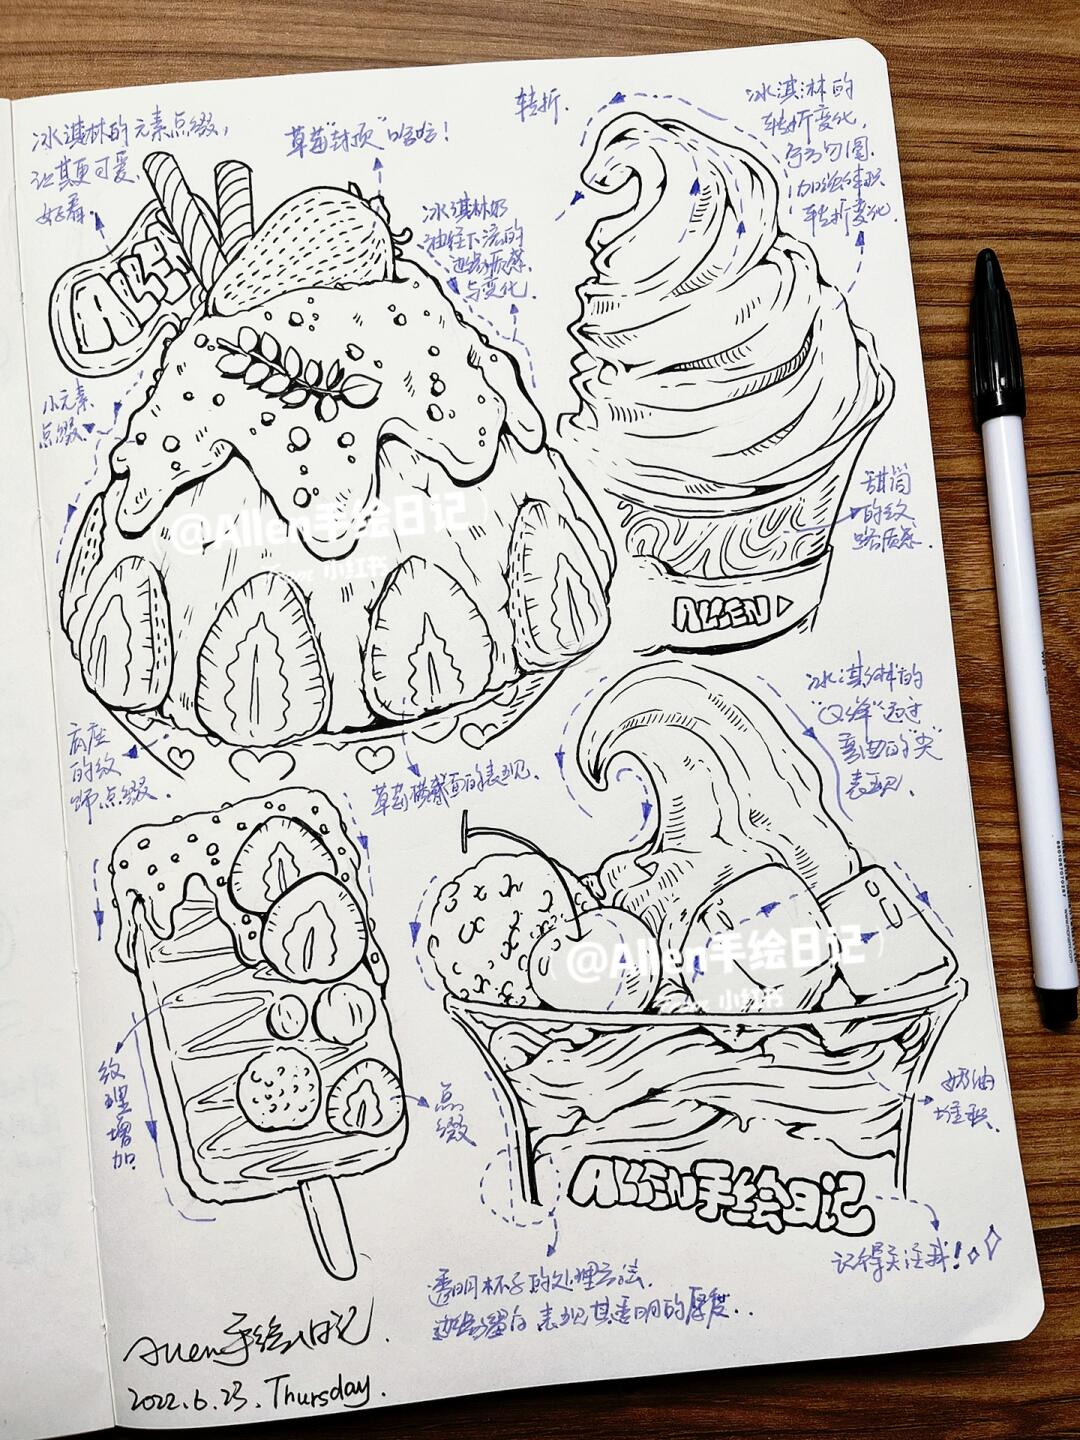 冰淇淋的元素点缀,
让其更可爱.
好看.
草莓"封顶"哈哈!
转折.
冰淇淋的
转折变化,
加强体积
转折变化.
冰淇淋奶
油往下流的
边缘质感
与变化.
ALLEN
小元素
点缀.
@Allen手绘日记
From 小红书
甜筒
的纹
路质感.
ALLEN
底座
的纹
饰点缀.
草莓横截面的表现.
冰淇淋的
"Q弹"通过
弯曲的"尖"
表现.
@Allen手绘日记
From 小红书
纹
理
增
加
点
缀
奶油
堆积.
ALLEN手绘日记
记得关注我!
透明杯子的处理方法.
边缘留白 表现其透明的厚度..
Allen手绘日记.
2022.6.23.Thursday.